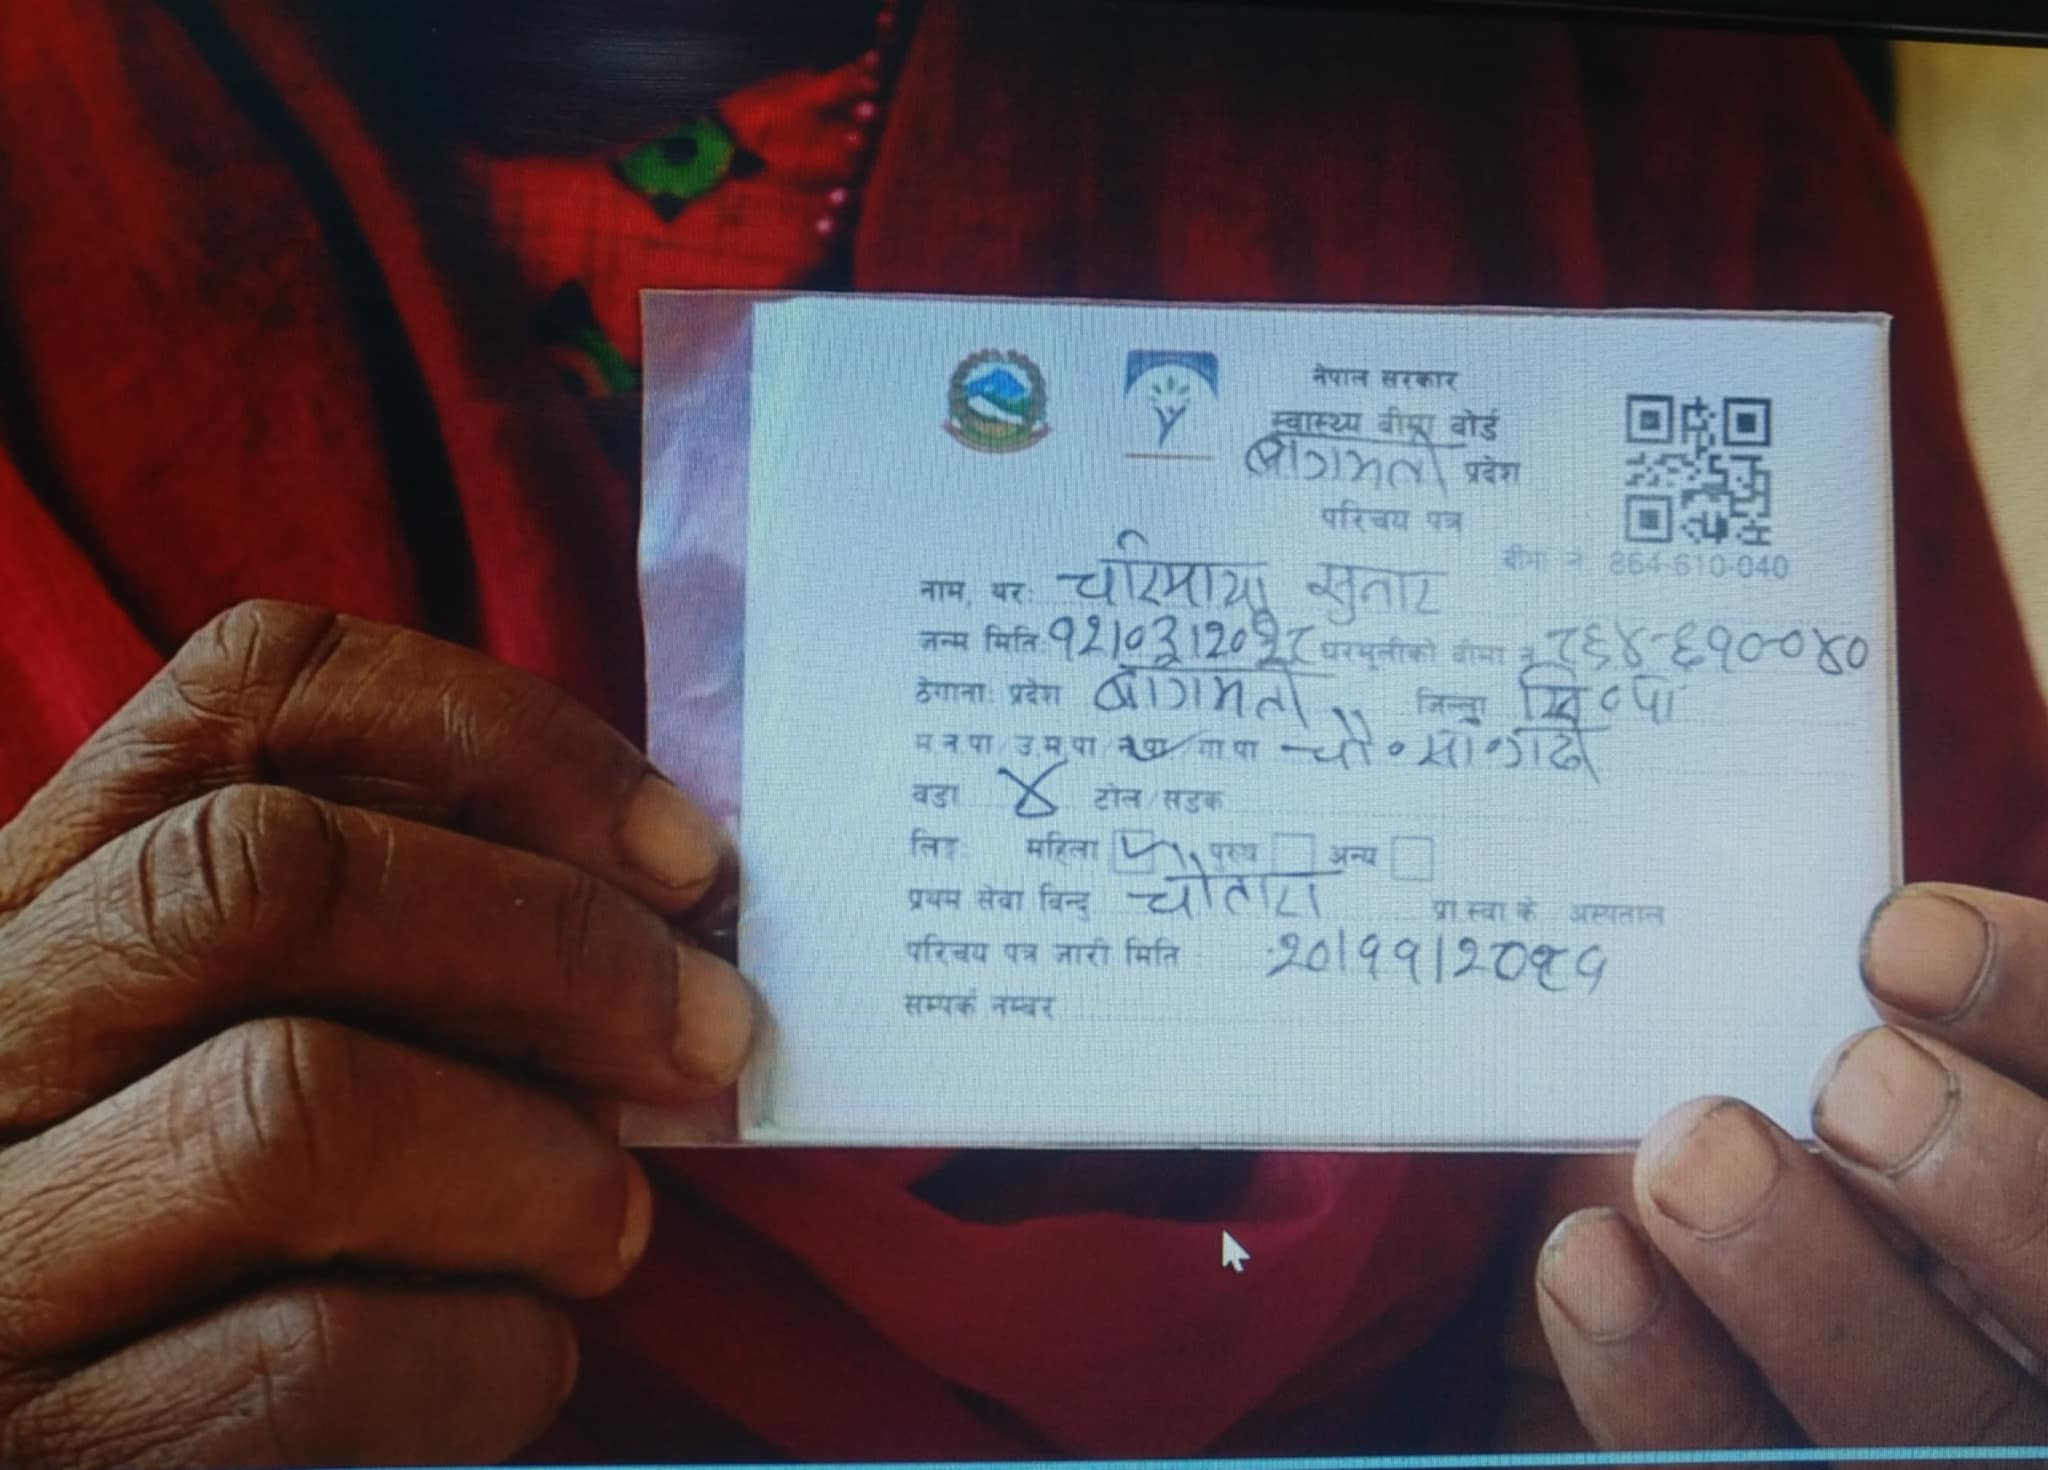 नेपाल सरकार
स्वास्थ्य बीमा बोर्ड
बागमती प्रदेश
परिचय पत्र
बीमा नं. 864-610-040
नाम, थर: चरिमाया सुनार
जन्म मिति: १२।०३।२०१८ घरमूलीको बीमा नं ८६४-६१०-०४०
ठेगाना: प्रदेश बागमती जिल्ला सि०पा
म.न.पा/उ.म.पा/न.पा/गा.पा चौ०सा०गढी
वडा ४ टोल/सडक
लिङ्ग: महिला पुरुष अन्य
प्रथम सेवा विन्दु चौतारा प्रा.स्वा.के. अस्पताल
परिचय पत्र जारी मिति २०।११।२०८१
सम्पर्क नम्बर